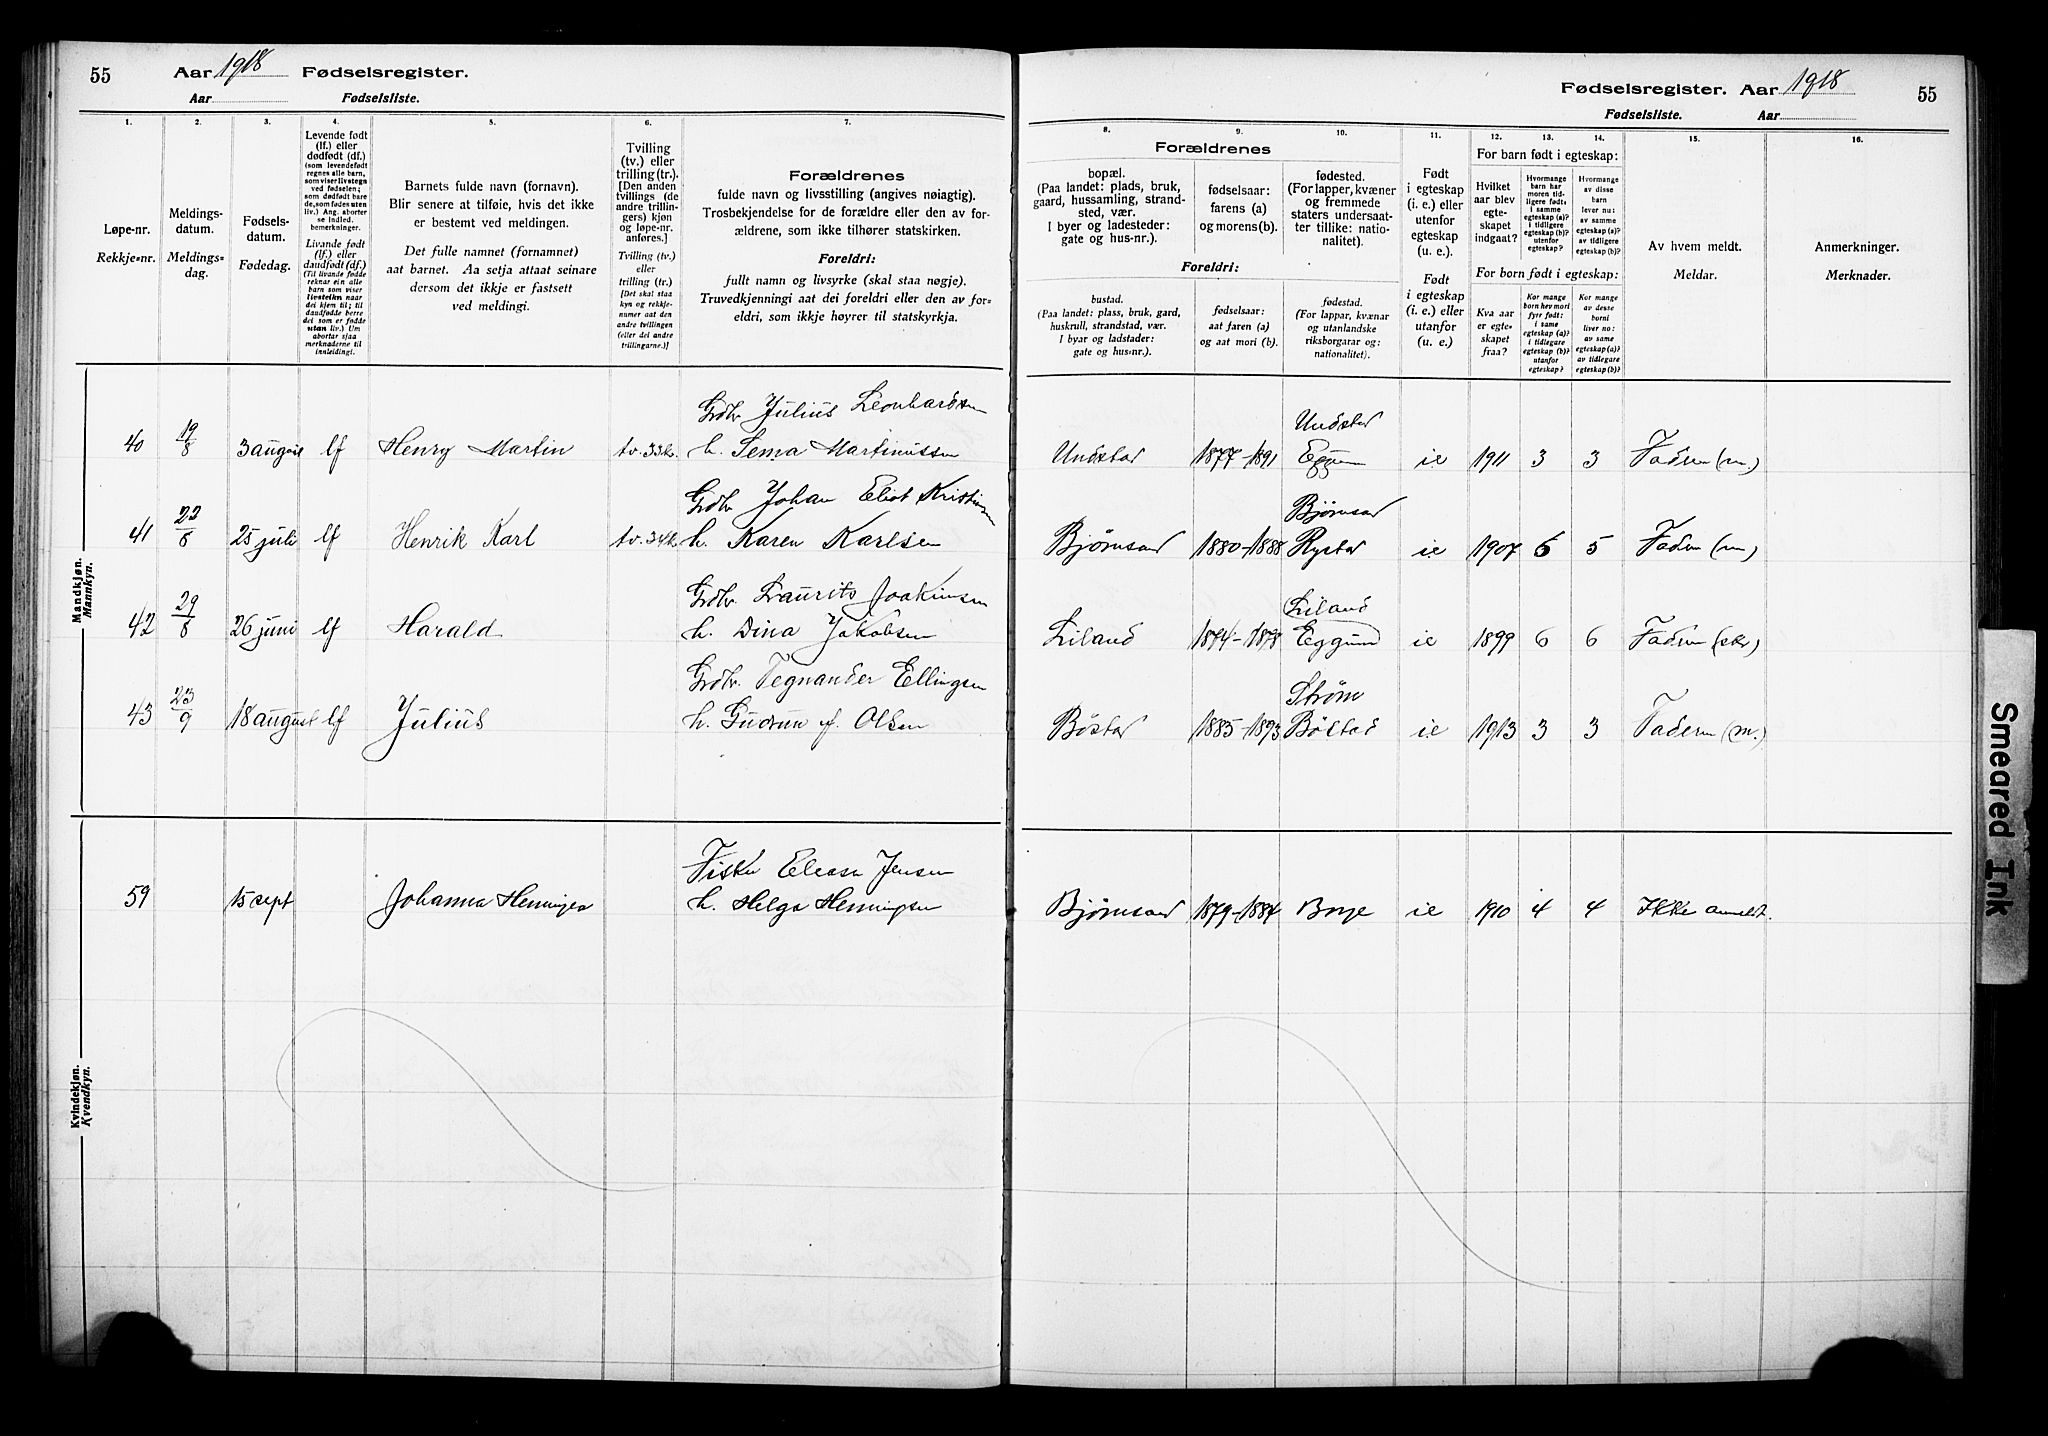 55 Aar 1918 Fødselsregister.
Aar Fødselsliste.
Fødselsregister. Aar 1918 55
Fødselsliste. Aar
1. 2. 3. 4. 5. 6. 7.
8. 9. 10. 11. 12. 13. 14. 15. 16.
Løpe-nr.
Rekkje-nr.
Meldings-
datum.
Meldings-
dag.
Fødsels-
datum.
Fødedag.
Levende født
(lf.) eller
dødfødt (df.)
(som levendefødt
regnes alle barn,
som viser livstegn
ved fødselen;
som dødfødt bare
de, som fødes uten
liv.) Ang. aborter
se indled.
bemerkninger.
Livande født
(lf.) eller
daudfødt (df.)
(Til livande fødde
reknar ein alle
born som viser
livsteikn naar
dei kjem til; til
daudfødde berre
dei som er fødde
utan liv.) Um
abortar sjaa
merknaderne til
innleidingi.
Barnets fulde navn (fornavn).
Blir senere at tilføie, hvis det ikke
er bestemt ved meldingen.
Det fulle namnet (fornamnet)
aat barnet. Aa setja attaat seinare
dersom det ikkje er fastsett
ved meldingi.
Tvilling
(tv.) eller
trilling (tr.).
[Den anden
tvillings (de
andre trillin-
gers) kjøn
og løpe-nr.
anføres.]
Tvilling (tv.)
eller
trilling (tr.)
[Det skal staa
kyn og rekkje-
numer aat den
andre tvillingen
(eller dei andre
trillingarne.)]
Forældrenes
fulde navn og livsstilling (angives nøiagtig).
Trosbekjendelse for de forældre eller den av for-
ældrene, som ikke tilhører statskirken.
Foreldri:
fullt namn og livsyrke (skal staa nøgje).
Truvedkjenningi aat dei foreldri eller den av for-
eldri, som ikkje høyrer til statskyrkja.
Forældrenes
bopæl.
(Paa landet: plads, bruk,
gaard, hussamling, strand-
sted, vær.
I byer og ladesteder:
gate og hus-nr.).
fødselsaar:
farens (a)
og morens (b).
fødested.
(For lapper, kvæner
og fremmede
staters undersaat-
ter tillike: natio-
nalitet).
Foreldri:
bustad.
(Paa landet: plass, bruk, gard,
huskrull, strandstad, vær.
I byar og ladstader:
gate og hus-nr.).
fødselsaar:
aat faren (a)
og aat mori (b).
fødestad.
(For lappar, kvænar
og utanlandske
riksborgarar og:
nationalitet).
Født
i egteskap
(i. e.) eller
utenfor
egteskap
(u. e.).
Født
i egteskap
(i. e.) eller
utanfor
(u. e.)
For barn født i egteskap:
Hvilket
aar blev
egte-
skapet
indgaat?
Hvormange
barn har
moren tid-
ligere født,
i samme
egteskap (a)?
i tidligere
egteskap (b)?
utenfor
egteskap?
Hvormange
av disse
barn
lever nu:
av samme
egteskap (a)?
av tidligere
egteskap (b)?
For born født i egteskap:
Kva aar
er egte-
skapet
fraa?
Kor mange
born hev mori
fyrr født:
i same
egteskap (a)?
i tidlegare
egteskap (b)?
utanfor
egteskap?
Kor mange
av desse
borni
liver no:
av same
egteskap (a)?
av tidlegare
egteskap (b)?
Av hvem meldt.
Meldar.
Anmerkninger.
Merknader.
Mandkjøn.
Mannkyn.
Gdbr Julius Leonhardsen Undstad
40 19/8 3 august lf Henry Martin tv. 33 k. h. Sema Martinussen Undstad 1877-1891 Eggum ie 1911 3 3 Fadren (m.)
Gdbr Johan Eliot Kristiansen Bjørnsad
41 22/8 25 juli lf Henrik Karl tv. 34 k. h. Karen Karlsen Bjørnsand 1880-1888 Rystad ie 1907 6 5 Fadren (m)
Gdbr. Laurits Joakimsen Liland
42 29/8 26 juni lf Harald h. Dina Jakobsen Liland 1874-1878 Eggum ie 1899 6 6 Fadren (skr)
Gdbr. Tegnander Ellingsen Strøm
43 23/9 18 august lf Julius h. Gudrun f. Olsen Bøstad 1885-1893 Bøstad ie 1913 3 3 Faderen (m.)
Kvindekjøn.
Kvendkyn.
Fisker Eleasa Jensen
59 15 sept Johanna Henninges h. Helga Henningsen Bjørnsand 1879-1884 Borge ie 1910 4 4 Ikke anmeldt.
Smeared Ink